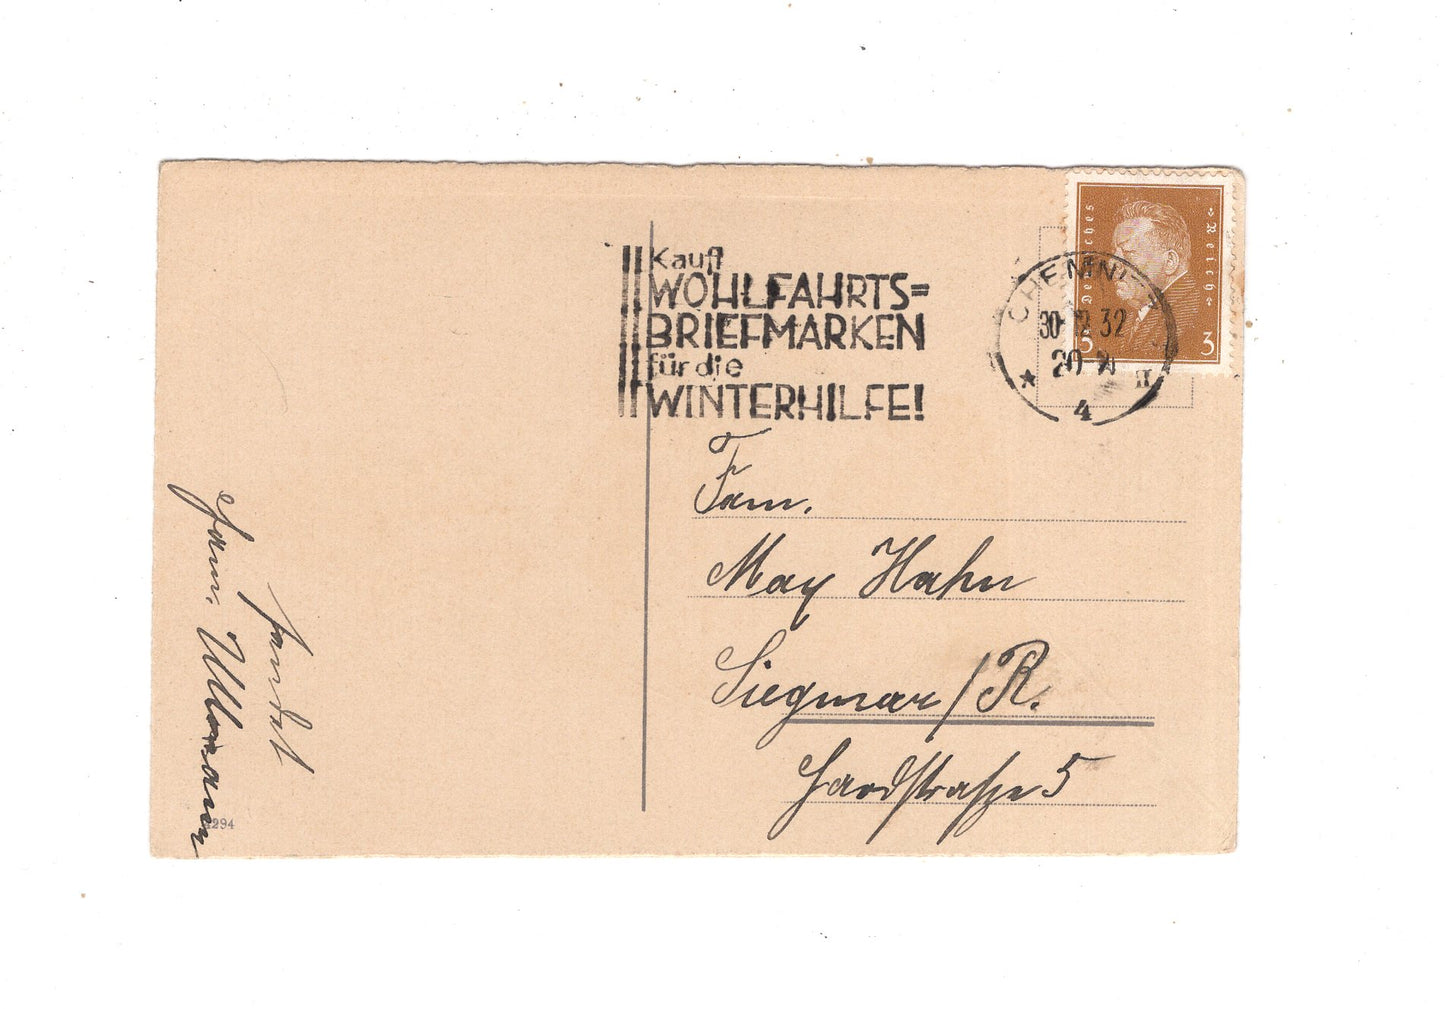 Kauft
WOHLFAHRTS=
BRIEFMARKEN
für die
WINTERHILFE!
CHEMNITZ
30.12.32
20-21
* 4 II
Deutsches Reich
3 3
Fam.
Max Hahn
Siegmar/R.
Hardtstraße 5
sendet
Fam. Ullmann
4294